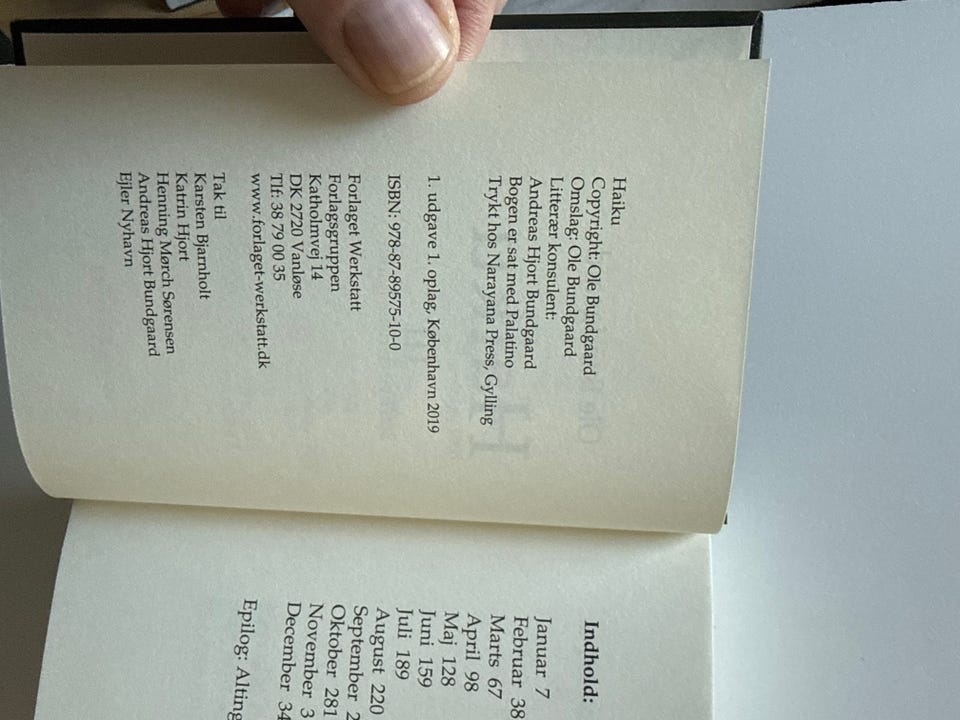 Haiku
Copyright: Ole Bundgaard
Omslag: Ole Bundgaard
Litterær konsulent:
Andreas Hjort Bundgaard
Bogen er sat med Palatino
Trykt hos Narayana Press, Gylling
1. udgave 1. oplag, København 2019
ISBN: 978-87-89575-10-0
Forlaget Werkstatt
Forlagsgruppen
Katholmvej 14
DK 2720 Vanløse
Tlf: 38 79 00 35
www.forlaget-werkstatt.dk
Tak til
Karsten Bjarnholt
Katrin Hjort
Henning Mørch Sørensen
Andreas Hjort Bundgaard
Ejler Nyhavn
Indhold:
Januar 7
Februar 38
Marts 67
April 98
Maj 128
Juni 159
Juli 189
August 220
September
Oktober 281
November
December
Epilog: Alting